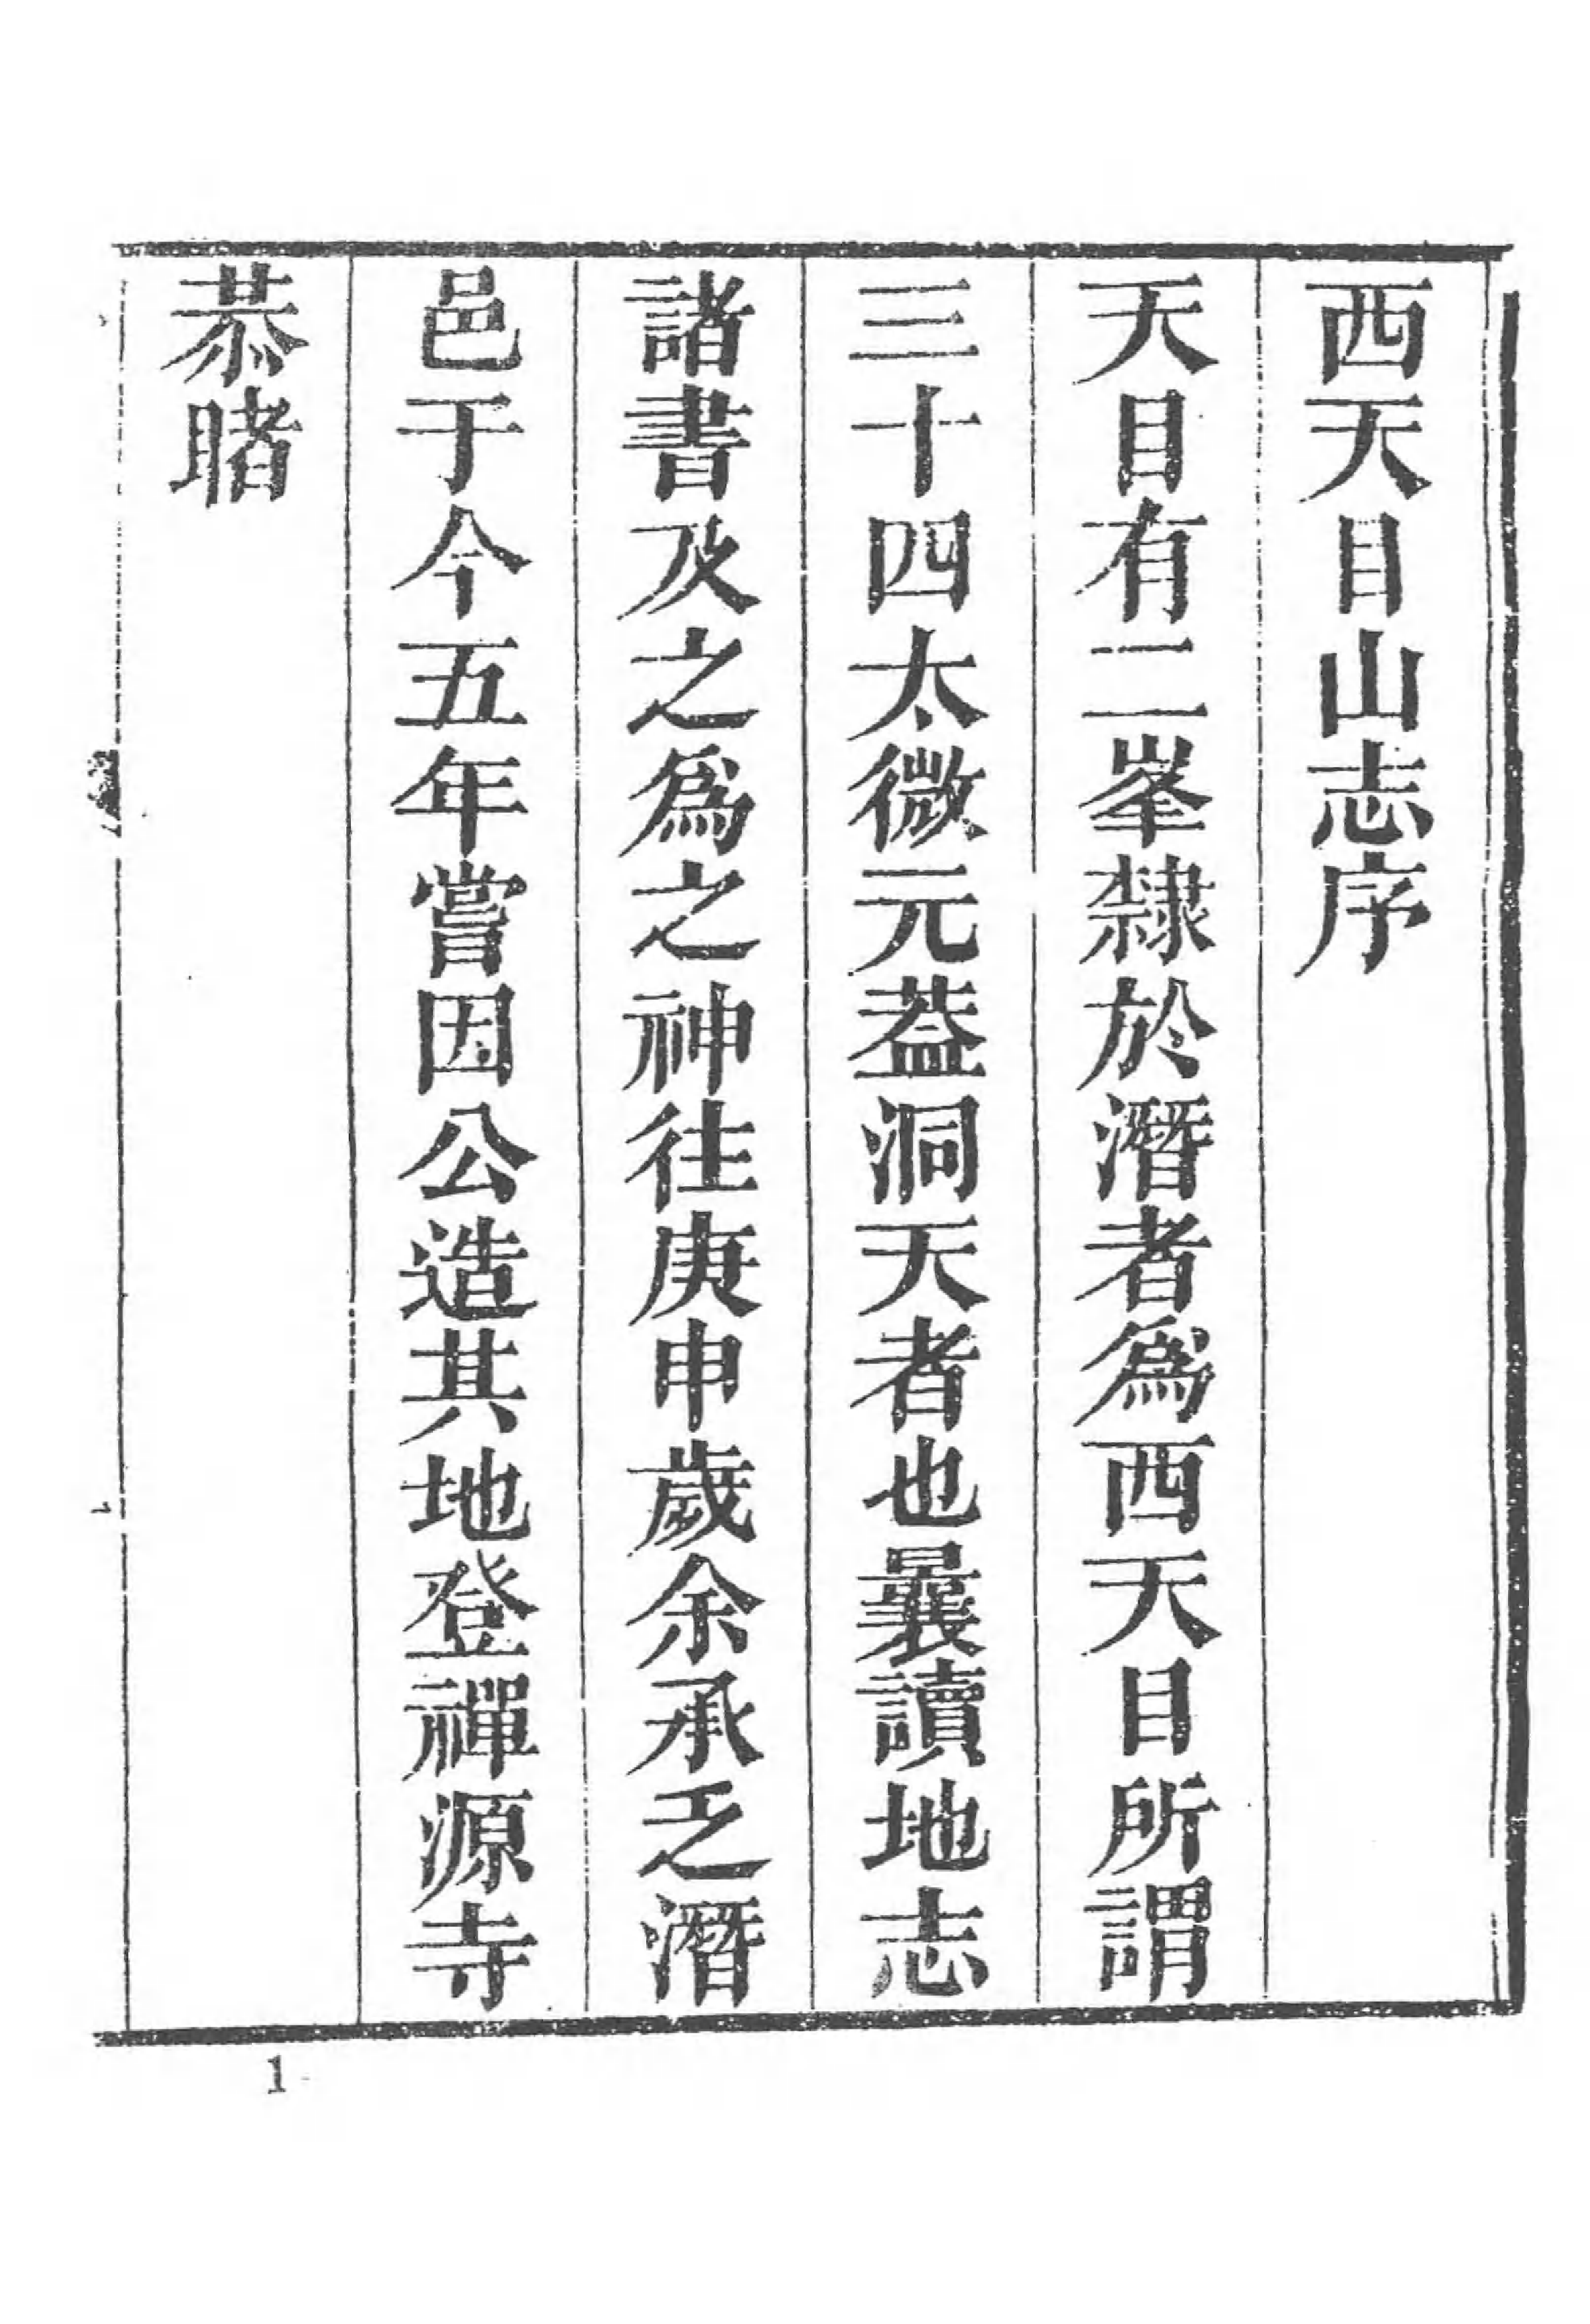 西天目山志序
天目有二峯隸於潛者爲西天目所謂
三十四太微元葢洞天者也曩讀地志
諸書及之爲之神往庚申歲余承乏潛
邑于今五年嘗因公造其地登禪源寺
恭睹
1